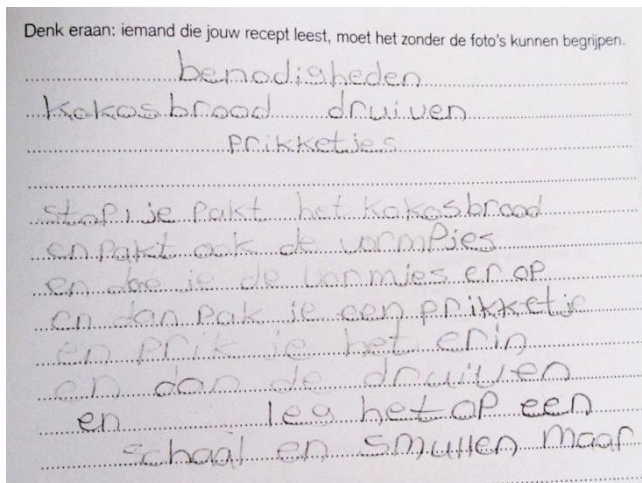 Denk eraan: iemand die jouw recept leest, moet het zonder de foto's kunnen begrijpen.
benodigheden
kokosbrood druiven
prikketjes
stap 1 je pakt het kokosbrood
en pakt ook de vormpjes
en doe je de vormies er op
en dan pak je een prikketje
en prik je het erin
en dan de druiven
en leg het op een
schaal en smullen maar